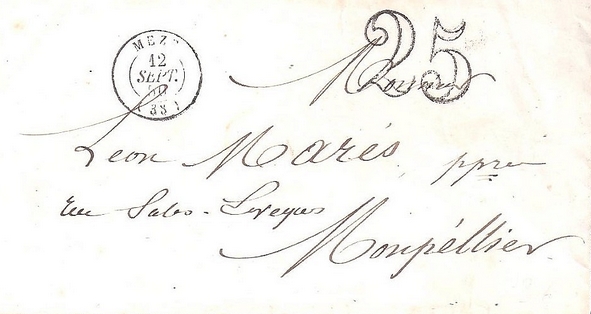 MEZE
12
SEPT.
(33)
25
Monsieur
Leon Marés, ppre
rue Salle-Leveque
Montpéllier